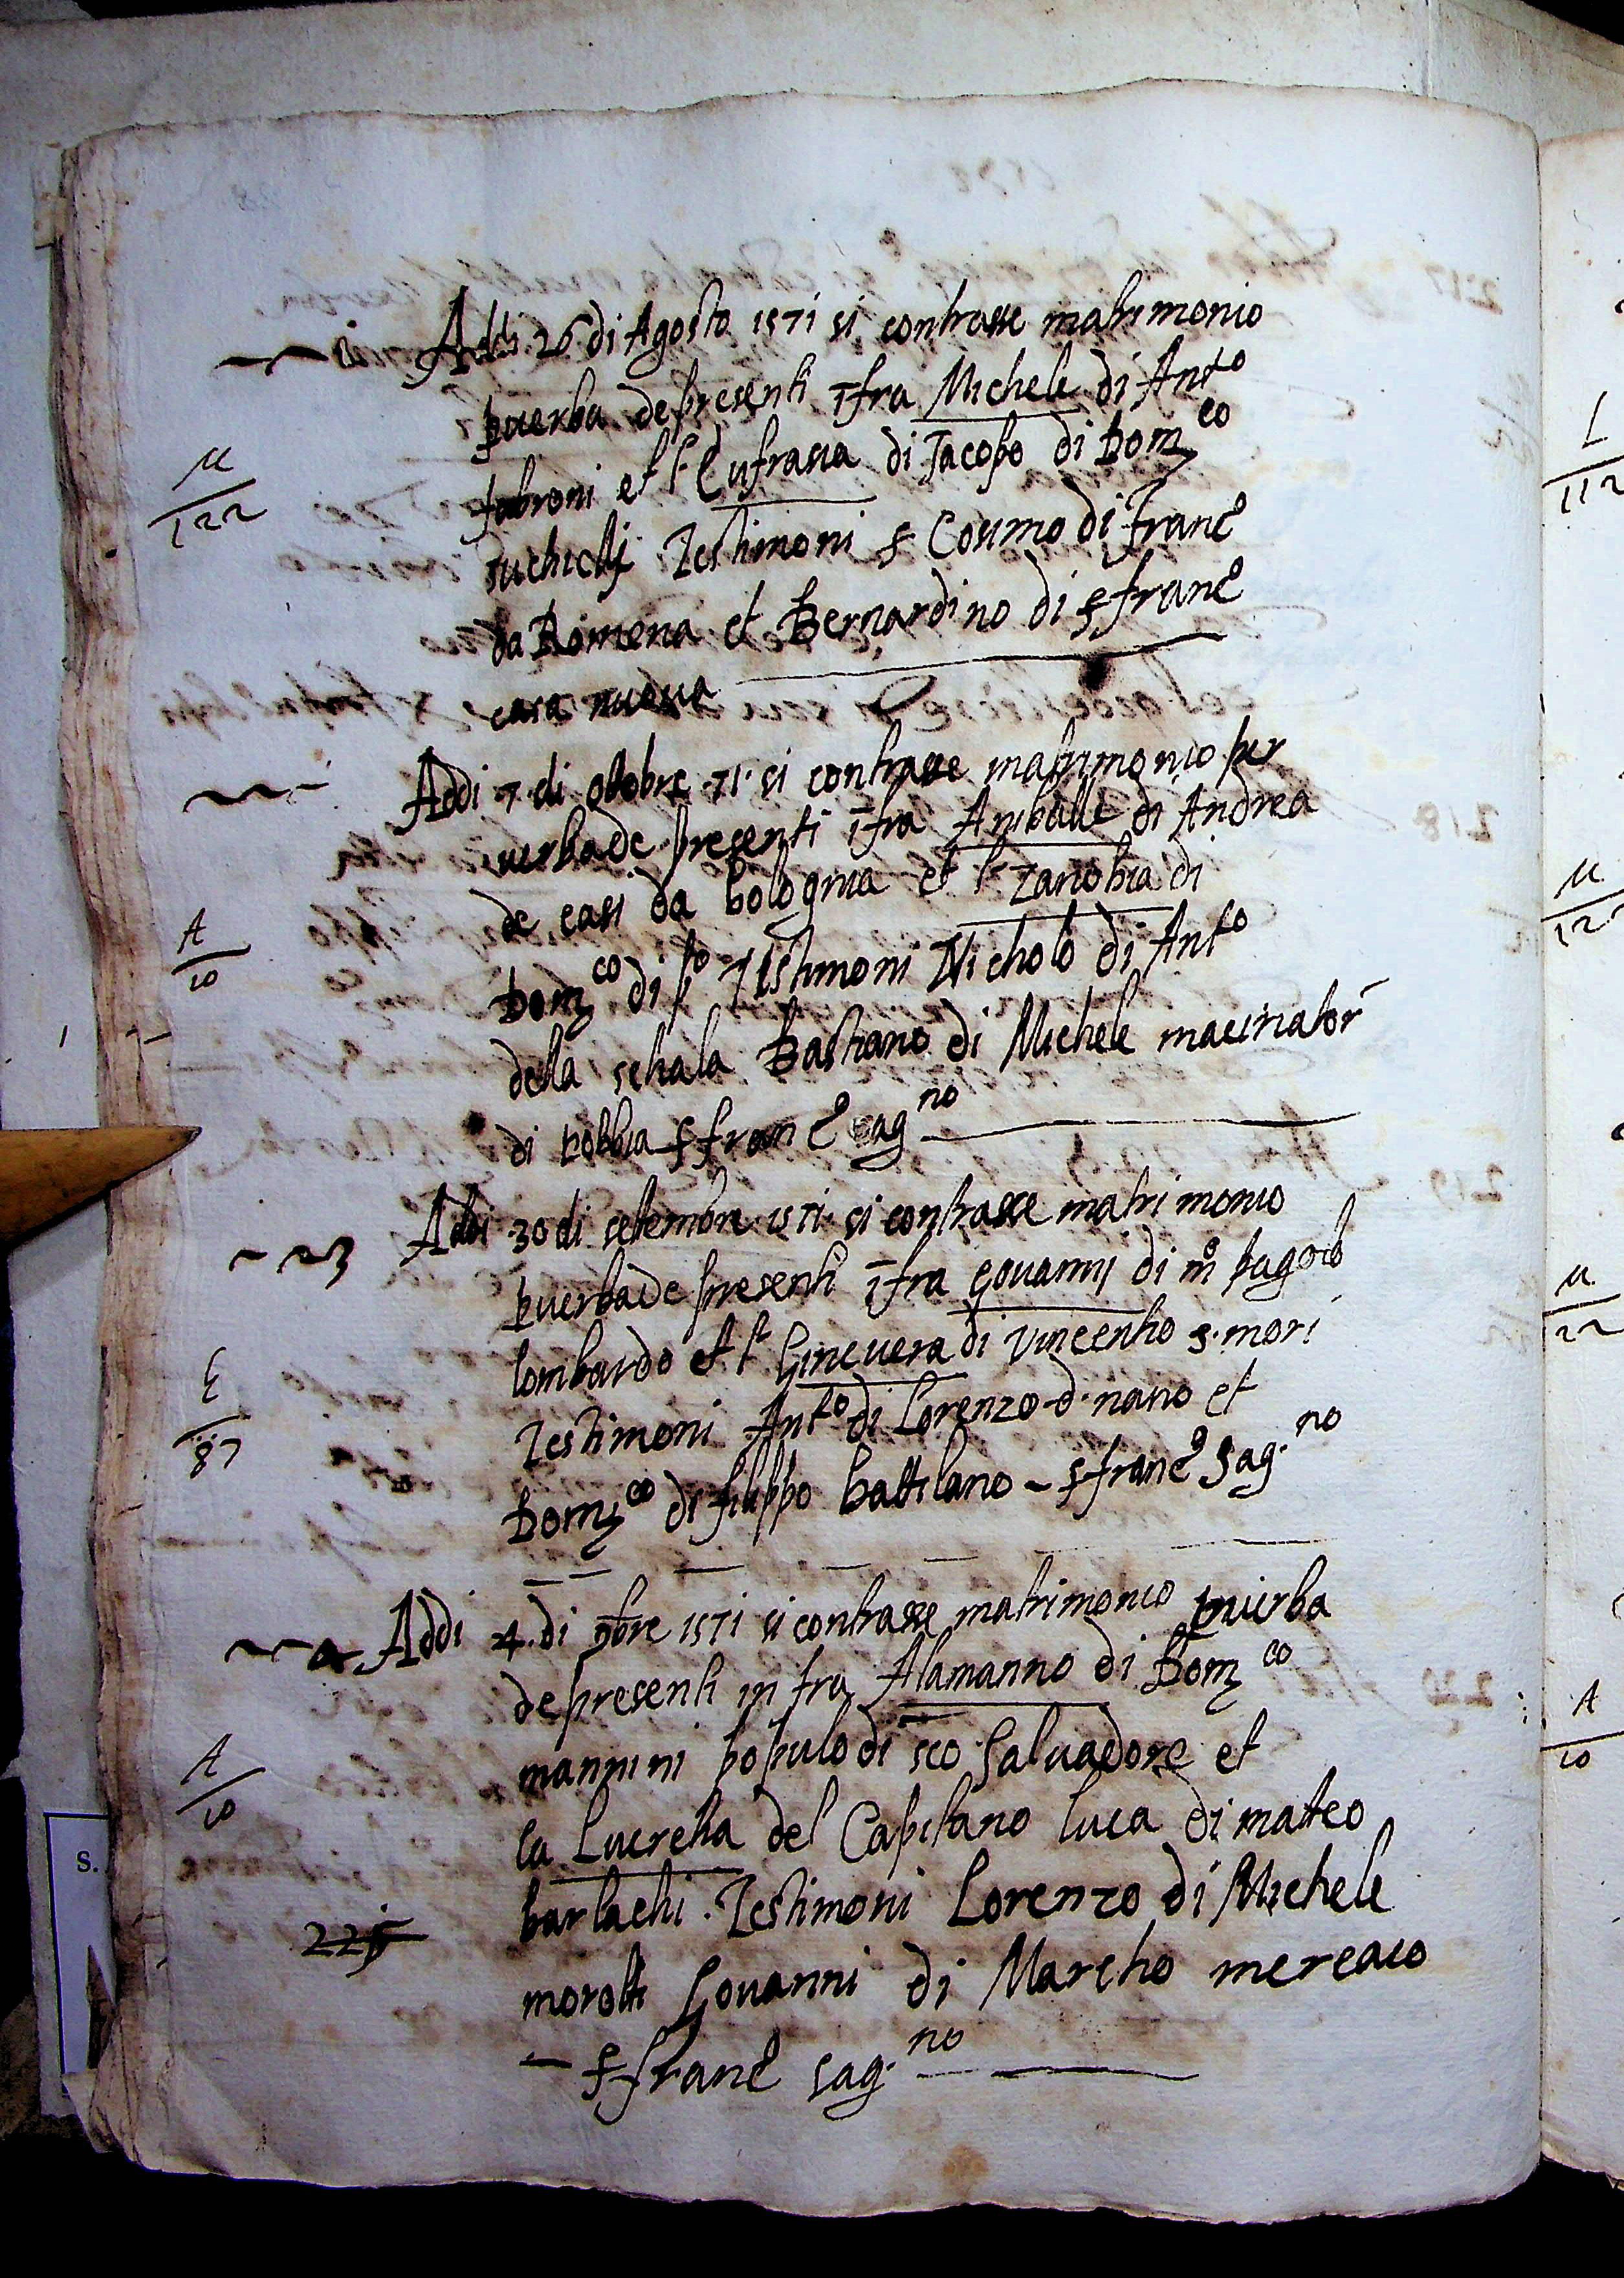 Addi 26 di Agosto 1571 si contrasse matrimonio
p uerba de presenti ifra Michele di Ant.to
M
122
fabroni et l.a Eufrasia di Jacopo di Dom.co
suchielli Testimoni s Cosimo di Franc.o
da Romena et Bernardino di s franc.o
casa nuova
Addi 7 di ottobre 71 si contrasse matrimonio per
uerba de presenti ifra Aniballe di Andrea
de casi da bologma et l.a zanobia di
A
10
Dom.co di p.o Testimoni Nicholo di Ant.to
della schala Bastiano di Michele macinator
di robbia s franc.o sag.no
3 Addi 30 di settembre 1571 si contrasse matrimonio
p uerba de presenti ifra giouannj di m.o pagolo
lombardo et l.a Gineuera di Vincentio s. mori
E
87
Testimoni Ant.to di Lorenzo d. nano et
Dom.co di filippo battilano – s franc.o sag.no
Addi 4 di 9bre 1571 si contrasse matrimonio p uierba
de presenti in fra Alamanno di Dom.co
mannini populo di sco Saluadore et
A
10
la Lucretia del Capitano luca di mateo
barlachi. Testimoni Lorenzo di Michele
225
morotti Giouanni di Marcho merciaio
– s franc.o sag.no